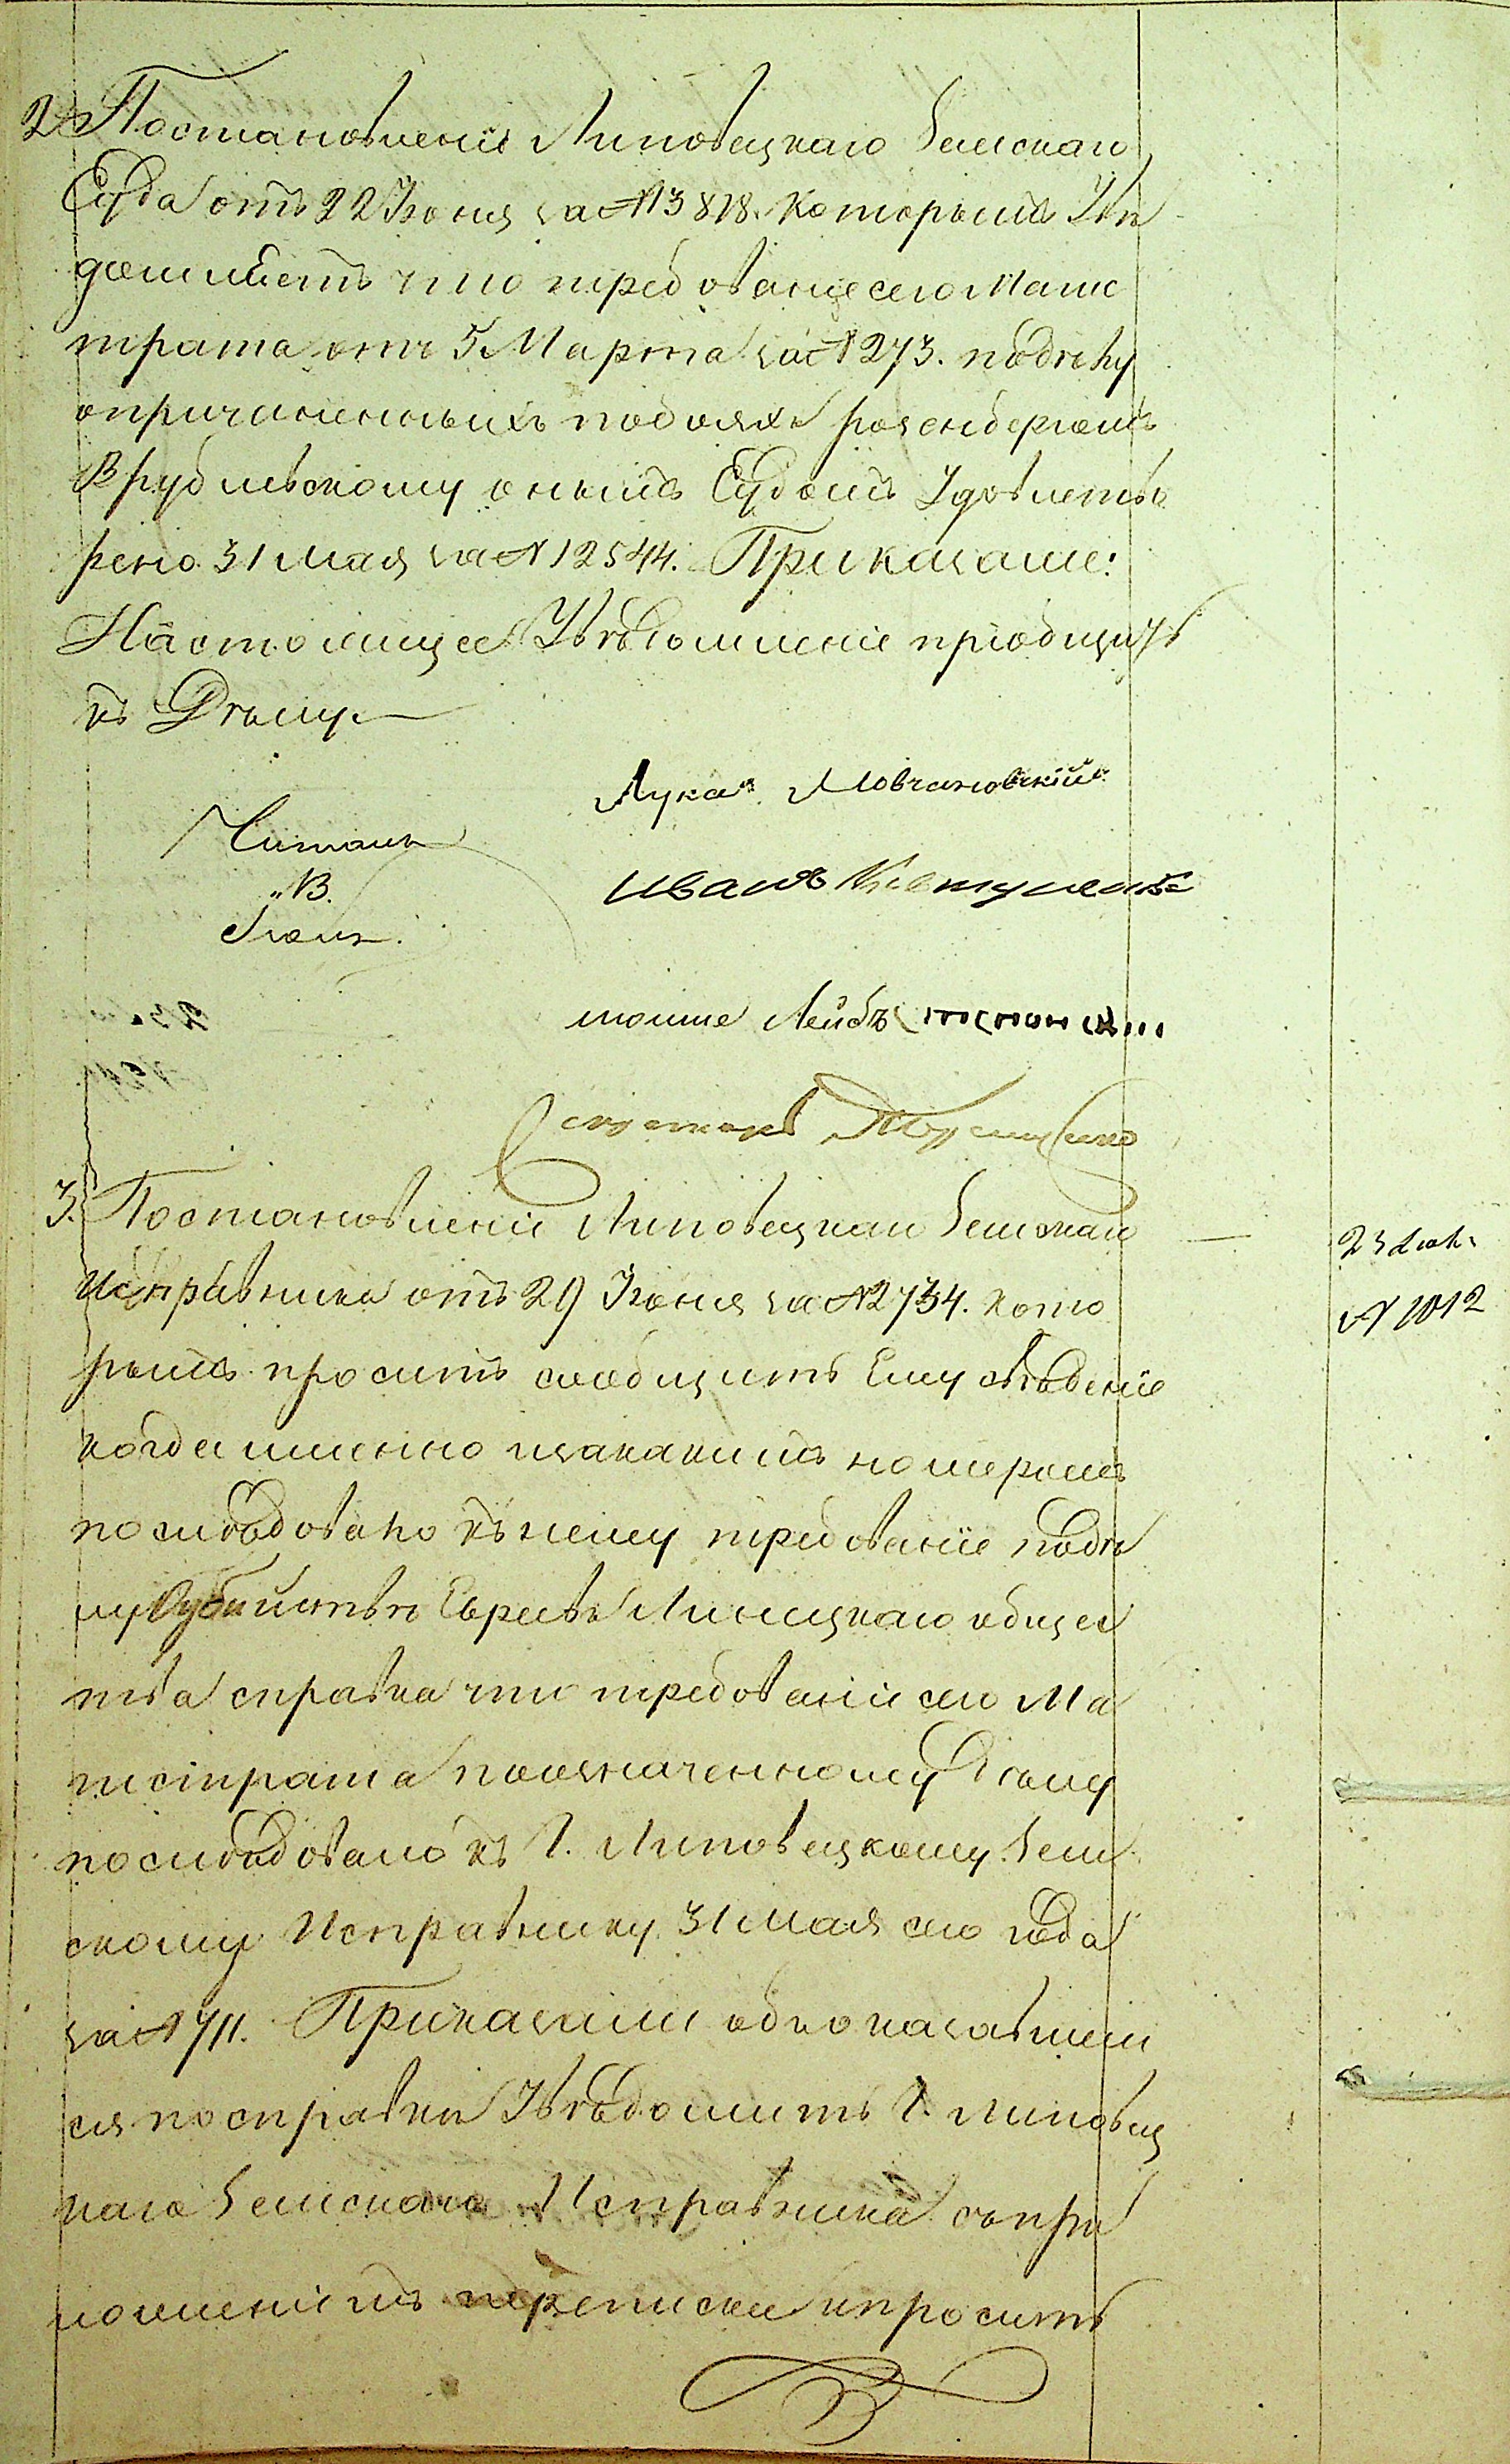 2 Постановленіе Липовецкаго Земскаго
Суда отъ 22 Іюня за № 3818. которымъ Уве
домляетъ что требованіе сего Магис
трата отъ 5 Марта за № 273. по делу
опричиненныхъ побояхъ розенбергомъ
Врублевскому онымъ Судомъ Удовлетво
рено 31 мая за № 12544. Приказали:
Настоящее Уведомленіе пріобщить
къ Делу.
Лука Мовчановскій
Читалъ
Иванъ
В.
мошке Лейбъ
Секретарь
3. Постановленіе Липовецкаго Земскаго
Исправника отъ 29 Іюня за № 2734. кото
рымъ проситъ сообщить Ему сведеніе
когда именно изакакимъ номеромъ
последовало къ нему требованіе по де
лу Обубійстве Евреевъ Линецкаго общес
тва справка что требованіе сего Ма
гистрата пообозначенному Делу
последовало къ Г. Липовецкому Зем
скому Исправнику 31 Мая сего года
за № 711. Приказали обоказавшем
ся посправки Уведомить Г. липовец
каго Земскаго Исправника съпри
ложеніемъ переписки ипросить
23 Іюл.
№ 1012